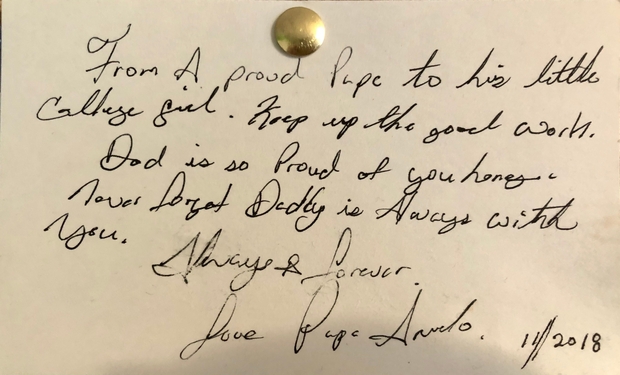 From A proud Papa to his little
College girl. Keep up the good work.
Dad is so Proud of you honey.
Never forget Daddy is Always with
You.
Always & forever.
Love Papa
11/2018